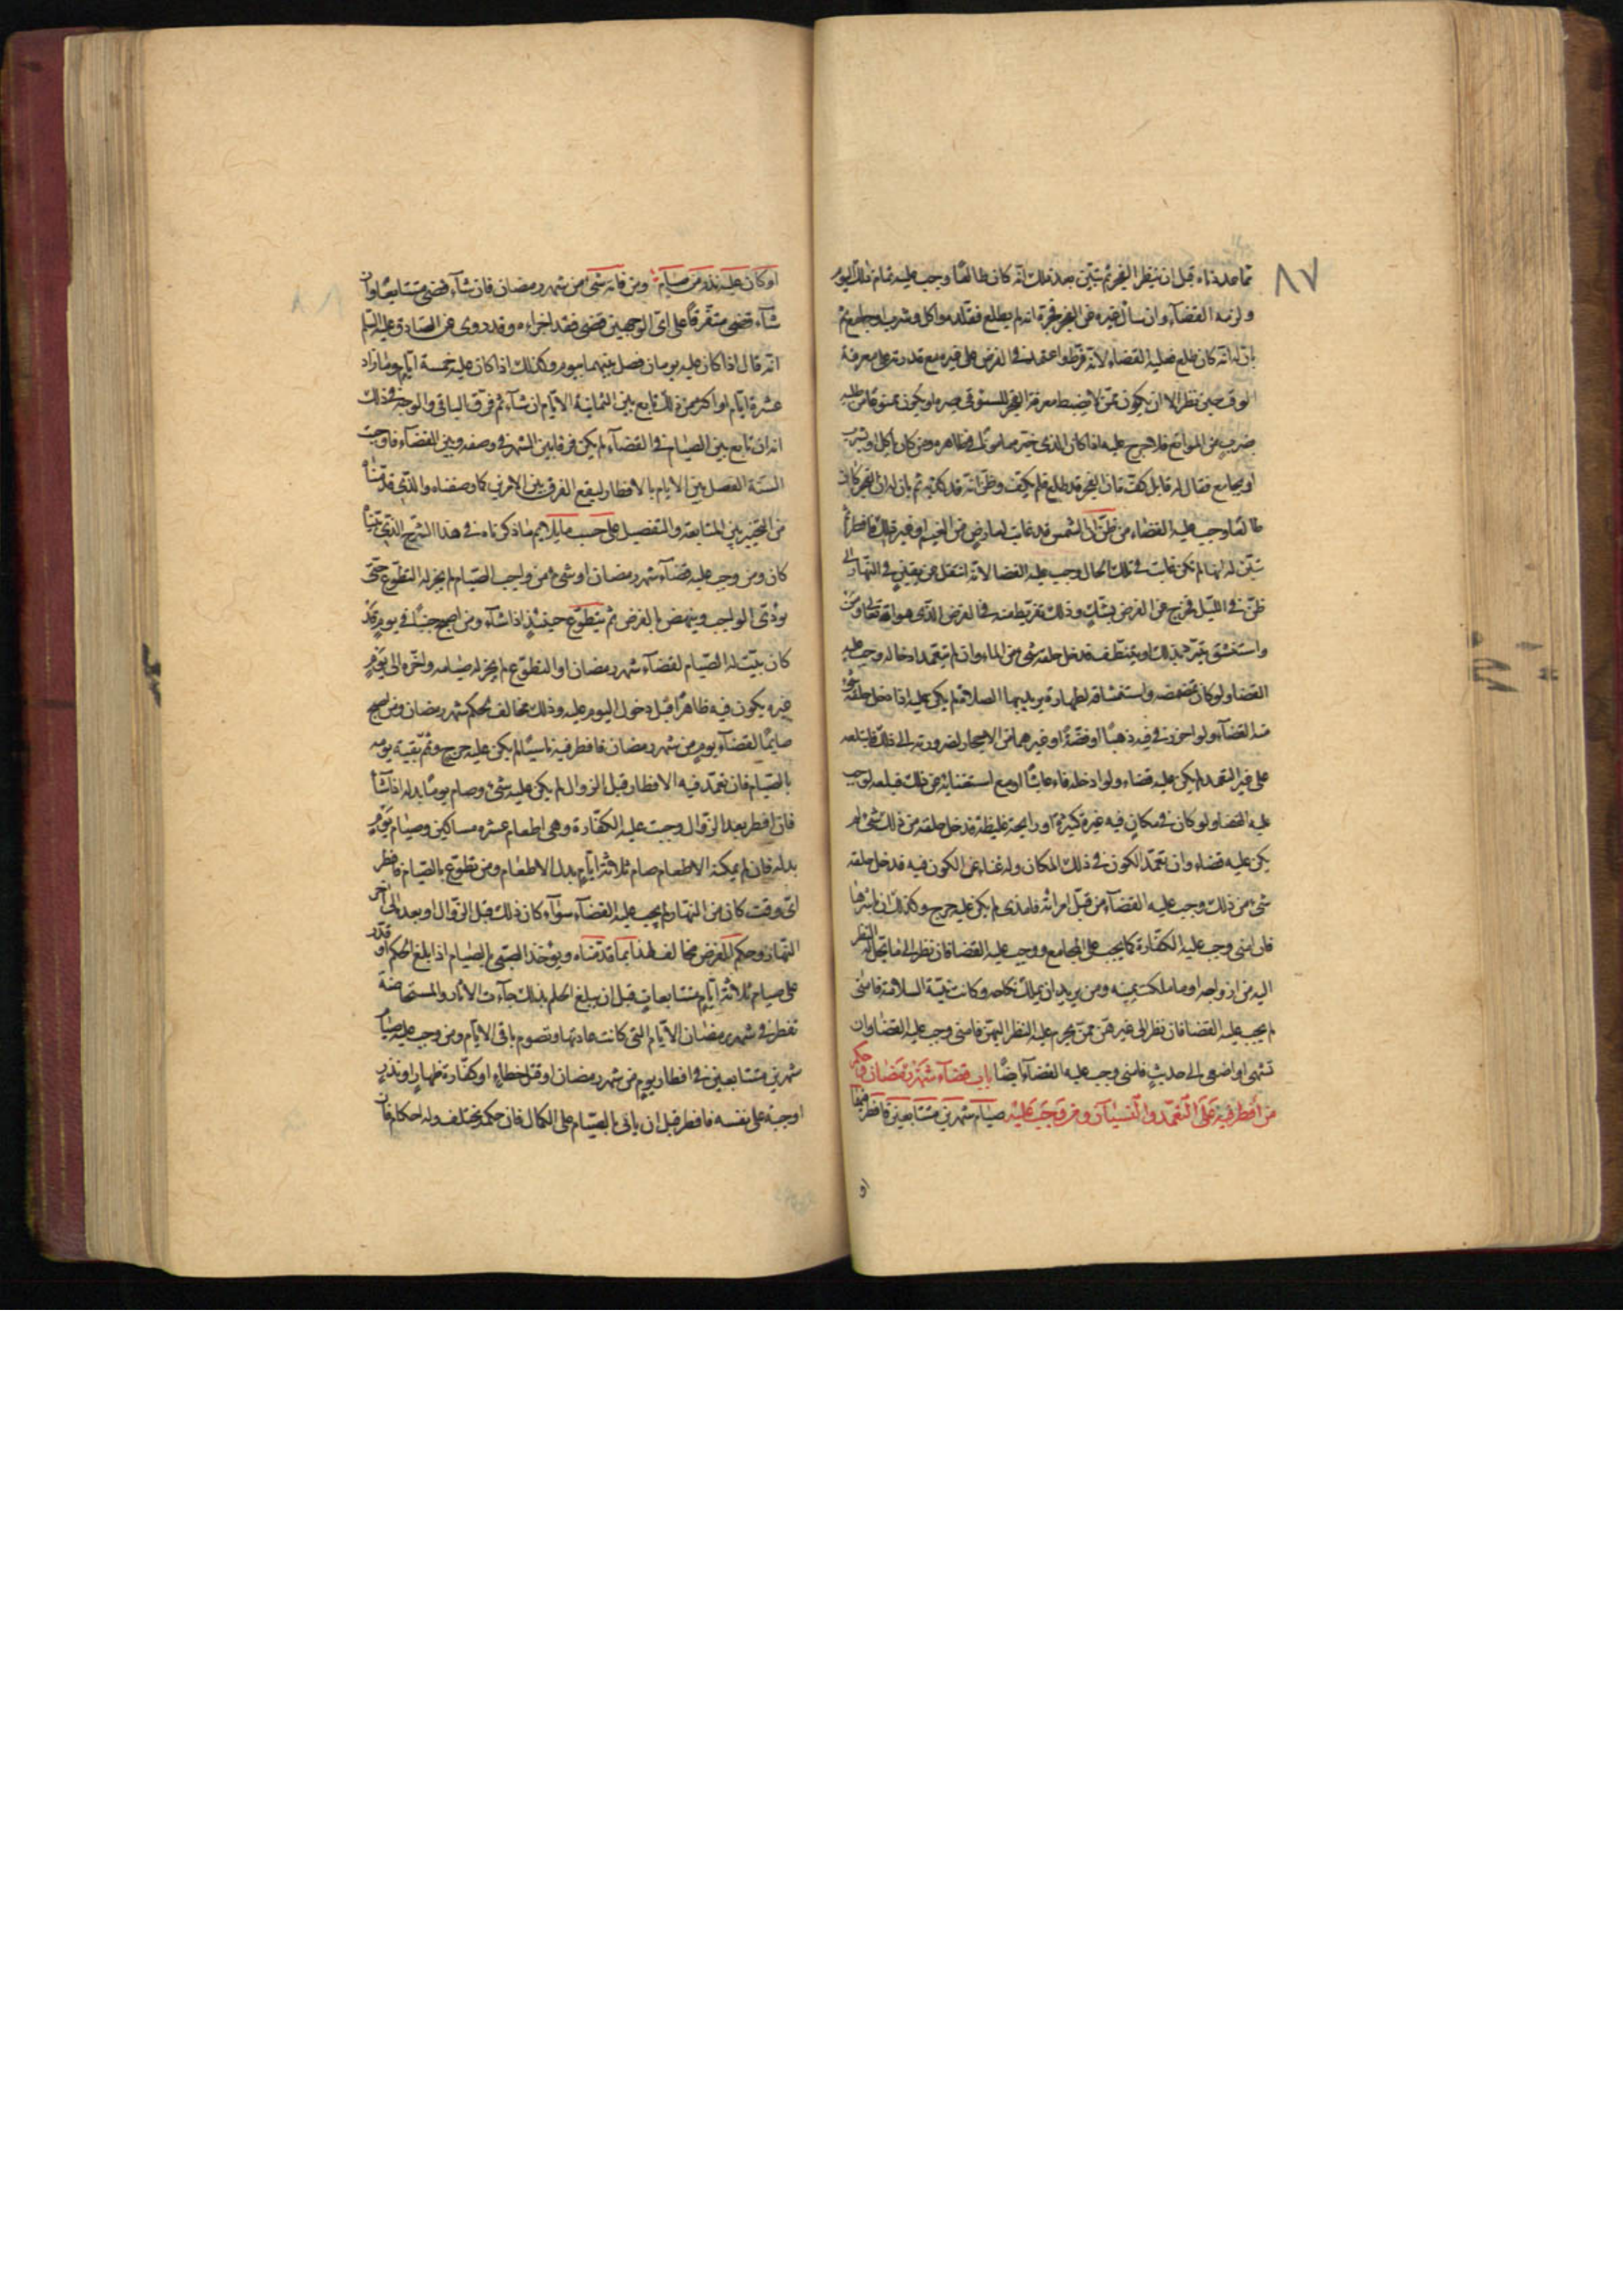 ٨٧
مما عددناه قبل ان ينظر الفجر ثم تبيّن بعد ذلك انّه كان طالعًا وجب عليه تمام ذلك اليوم
ولزمه القضآء وان سأل غيره عن الفجر فخبره انه لم يطلع فقلّده واكل وشرب او جامع ثم
بان له انه كان طلع فعليه القضاء لانّه فرّط واعتمد في الفرض على غيره مع قدرته على معرفة
الوقت حين نظر الا ان يكون ممن لا يضبط معرفة الفجر
ضرب من الموانع فلا حرج عليه اذا كان الذى خبّره مامونًا في ظاهره ومن كان ياكل او يشرب
او يجامع فقال له قايل كفّ فان الفجر قد طلع فلم يكفّ وظنّ انّه قد كذبه ثم بان له ان الفجر كان
طالعًا وجب عليه القضاء ومن ظنّ ان الشمس قد غابت لعارض من الغيم او غير ذلك فافطر ثم
تبيّن له انها لم تكن غابت في تلك الحال وجب عليه القضا لانّه انتقل عن يقين في النهار الى
ظنّ في الليل فخرج عن الفرض بشكّ وذلك تفريط منه في الفرض الذى هو لله تعالى ومن
واستنشق تبرّد بذلك او يتنظف فدخل حلقه شئ من الماء وان لم يتعمد ادخاله وجب عليه
القضا ولو كان تمضمضه واستنشاقه لطهارة يريد بها الصلاة لم يكن عليه اذا دخل حلقه شئ
منه القضآء ولو احرز في فيه ذهبًا او فضّةً او غيرهما من الاحجار لضرورته الى ذلك فابتلعه
على غير التعمد لم يكن عليه قضاء ولو ادخله فاه عابثًا او مع استغنائه عن ذلك فبلعه لوجب
عليه القضا ولو كان في مكان فيه غبرة كثيرة او رايحة غليظة فدخل حلقه من ذلك شئ لم
يكن عليه قضاء وان تعمّد الكون في ذلك المكان وله غناء عن الكون فيه فدخل حلقه
شئ من ذلك وجب عليه القضآء ومن قبّل امراته فامذى لم يكن عليه حرج وكذلك ان باشرها
فان امنى وجب عليه الكفّارة كما يجب على المجامع ووجب عليه القضا فان نظر الى ما يحل له النظر
اليه من ازواجه او ما ملكت يمينه ومن يريد ان يملك نكاحه وكانت نيّة السلامة فامنى
لم يجب عليه القضا فان نظر الى غيرهنّ ممن يحرم عليه النظر اليهنّ فامنى وجب عليه القضا وان
تشهى او اصغى الى حديث فامنى وجب عليه القضآء ايضًا باب قضآء شهر رمضان وحكم
من افطر فيه على التعمّد والنسيان ومن وجب عليه صيام شهرين متتابعين فافطر فيهما
او
او كان عليه نذر من صيام ومن فاته شئ من شهر رمضان فان شآء قضى متتابعًا وان
شآء قضى متفرقًا على اىّ الوجهين قضى فقد اجزاه وقد روى عن الصادق عليه السلام
انّه قال اذا كان عليه يومان فصل بينهما بيوم وكذلك اذا كان عليه خمسة ايّام وما زاد
عشرة ايّام او اكثر من ذلك تابع بين الثمانية الايّام ان شآء ثم فرق الباقى والوجه في ذلك
انه ان تابع بين الصيام في القضآء لم يكن فرق بين الشهر في وصفه وبين القضآء فاوجب
السنّة الفصل بين الايام بالافطار ليقع الفرق بين الامرين كما وصفناه والذى قدمناه
من التخيير بين المتابعة والتفصيل على حسب ما يلايم ما ذكرناه في هذا الشرح الذى بيّناه
كان ومن وجب عليه قضآء شهر رمضان او شئ من واجب الصيام لم يجز له التطوع حتى
يؤدى الواجب وينهض بالفرض ثم يتطوع حينئذ اذا شآء ومن اصبح جنبًا في يوم قد
كان بيّت له الصيام لقضآء شهر رمضان او التطوع لم يجز له صيامه واخّره الى يوم
غيره يكون فيه طاهرًا قبل دخول اليوم عليه وذلك مخالف لحكم شهر رمضان ومن اصبح
صايمًا لقضآء يوم من شهر رمضان فافطر فيه ناسيًا لم يكن عليه حرج وتمّم بقية يومه
بالصيام فان تعمّد فيه الافطار قبل الزوال لم يكن عليه شئ وصام يومًا بدله اذا شآء
فان افطر بعد الزوال وجبت عليه الكفّارة وهى اطعام عشره مساكين وصيام يوم
بدله فان لم يمكنه الاطعام صام ثلاثة ايّام بدل الاطعام ومن تطوع بالصيام فافطر
اىّ وقت كان من النهار لم يجب عليه القضآء سوآء كان ذلك قبل الزوال او بعده الى آخر
النهار وحكم الفرض مخالف لهذا بما قدمناه ويؤخذ الصبى بالصيام اذا بلغ الحلم او قدر
على صيام ثلاثة ايّام متتابعات قبل ان يبلغ الحلم بذلك جاءت الاثار والمستحاضة
تفطر في شهر رمضان الايّام التى كانت عادتها وتصوم باقى الايّام ومن وجب عليه صيام
شهرين متتابعين في افطار يوم من شهر رمضان او قتل خطاء او كفّارة ظهار او نذر
اوجبه على نفسه فافطر قبل ان ياتى بالصيام على الكمال فان حكمه يختلف وله احكام فان